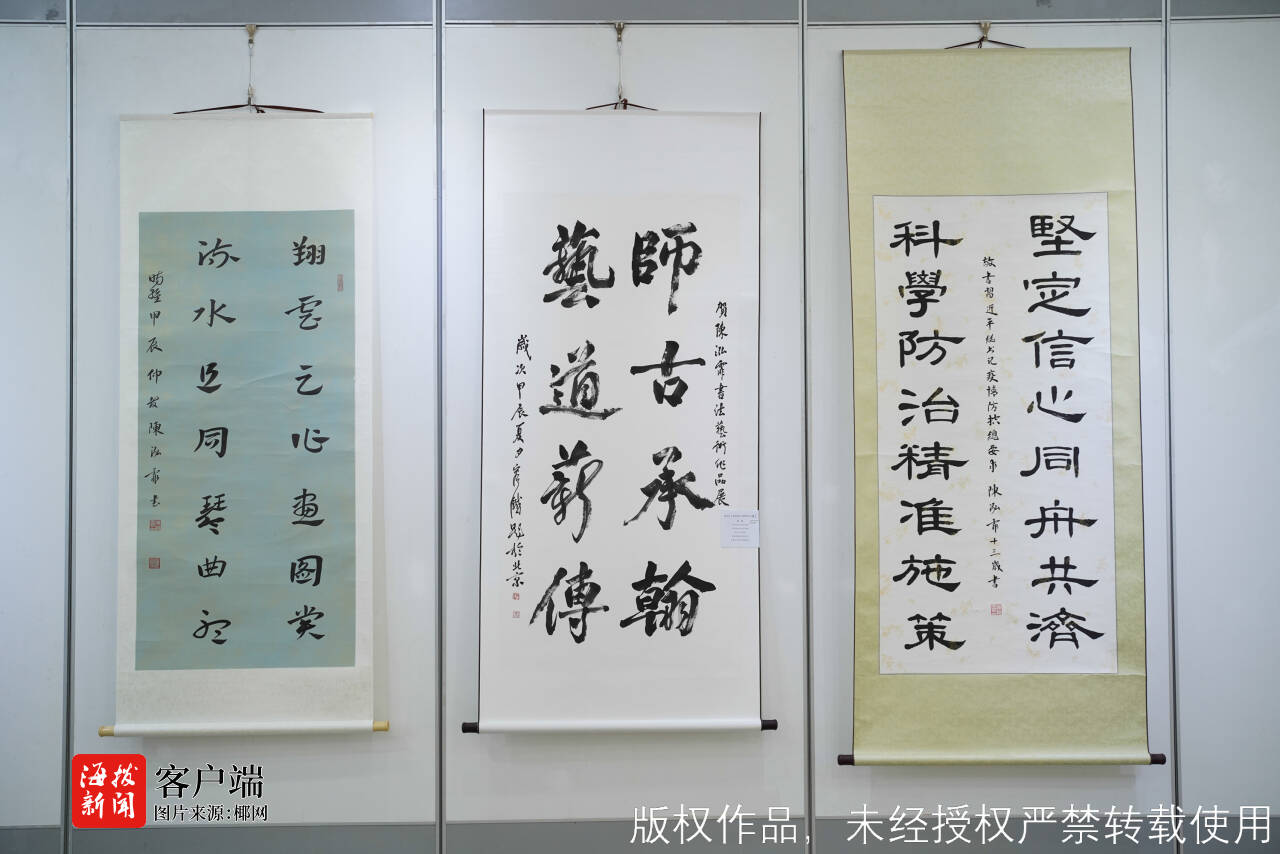 翔雲作畫圖賞
流水且同琴曲聽
甲辰仲陳泓霏書
賀陳泓霏書法藝術作品展
師古承翰
藝道薪傳
歲次甲辰夏月題於北京
堅定信心同舟共濟
敬書習近平總書記疫情防控總要求 陳泓霏十三歲書
科學防治精准施策
海拔新闻
客户端
图片来源:椰网
版权作品，未经授权严禁转载使用